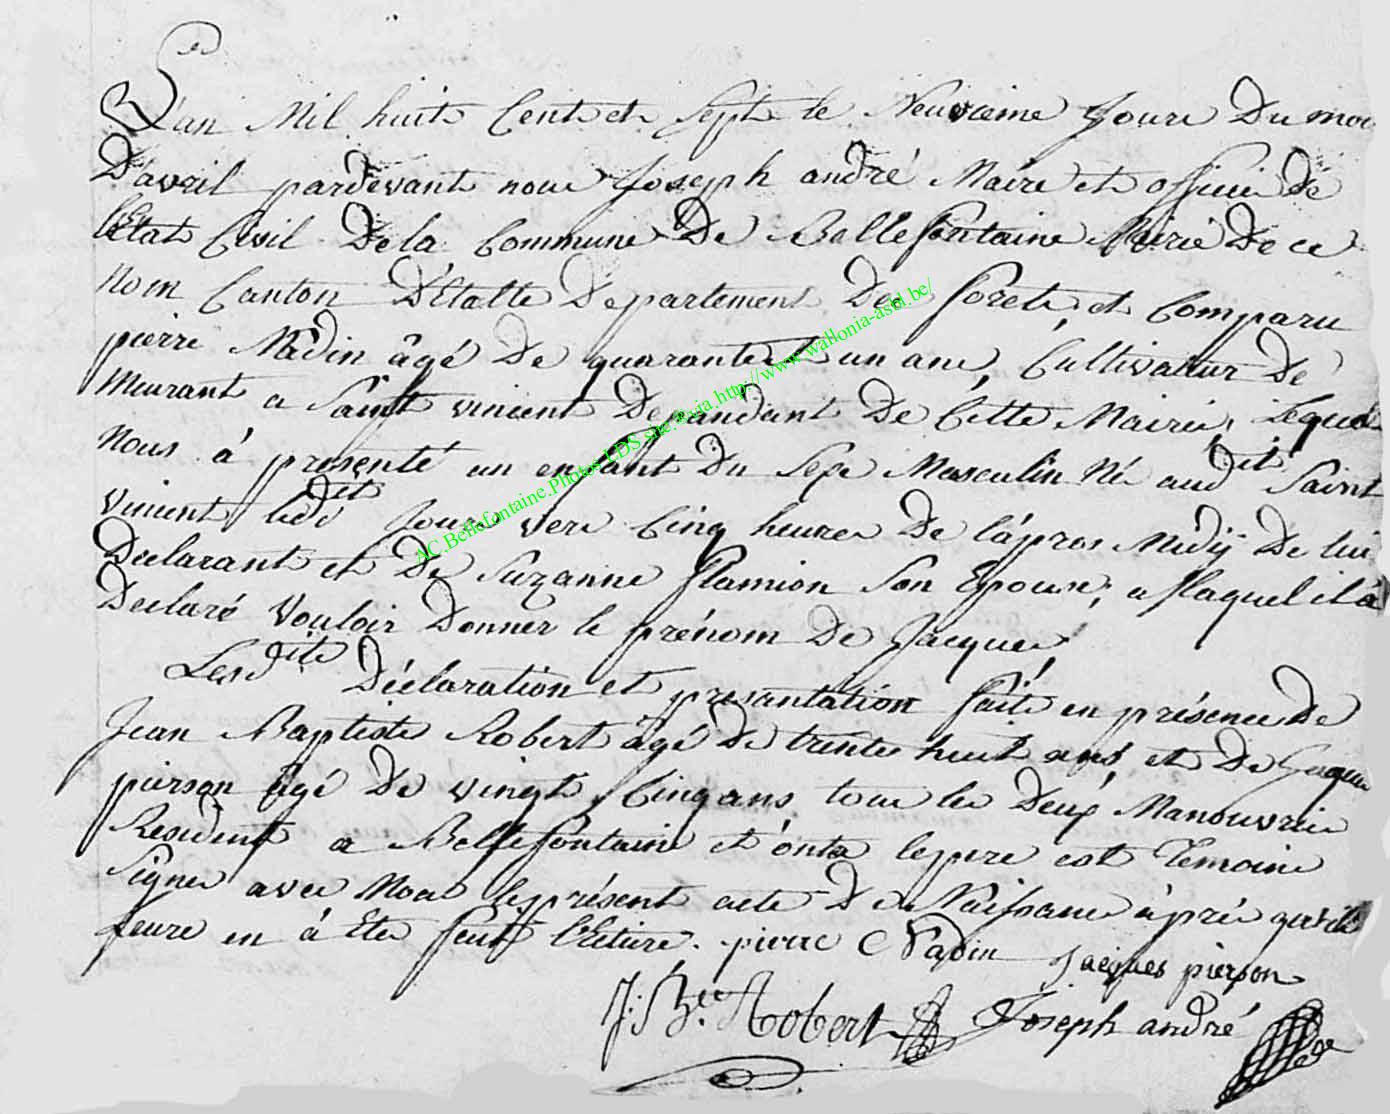 L'an Mil huit Cent et Sept le Neuvaime Jour Du moi
D'avril pardevant nous Joseph andré Maire et officier De
l'Etat Civil De la Commune De Bellefontaine Mairie De ce
nom Canton D'Etalle Departement Des forets, et Comparu
pierre Nadin âgé De quarante et un ans, Cultivateur De
meurant a Saint vincent Dépandant De Cette Mairie, Lequel
nous à présenté un enfant Du Sexe Masculin Né audit Saint
vincent ledit Jour vers Cinq heures De l'apres Midÿ De lui
Declarant et De Suzanne flamion Son Epouse, a Laquel il a
Declaré Vouloir Donner le prénom De Jacques
Lesdite Déclaration et presantation faite en présence De
Jean Baptiste Robert âgé De trente huit ans et De Jaques
pierson âgé De vingt Cinq ans, tous les Deux Manouvrier
Resident a Bellefontaine et ont le pere est Temoins
Signer avec Nous le présent acte De Naissance àprés qu'il
leure en à Eter fait l'Ecture. pierre Nadin Jacques pierson
J: Bte Robert Joseph andré
AC.Bellefontaine.Photos LDS site: http://www.wallonia-asbl.be/